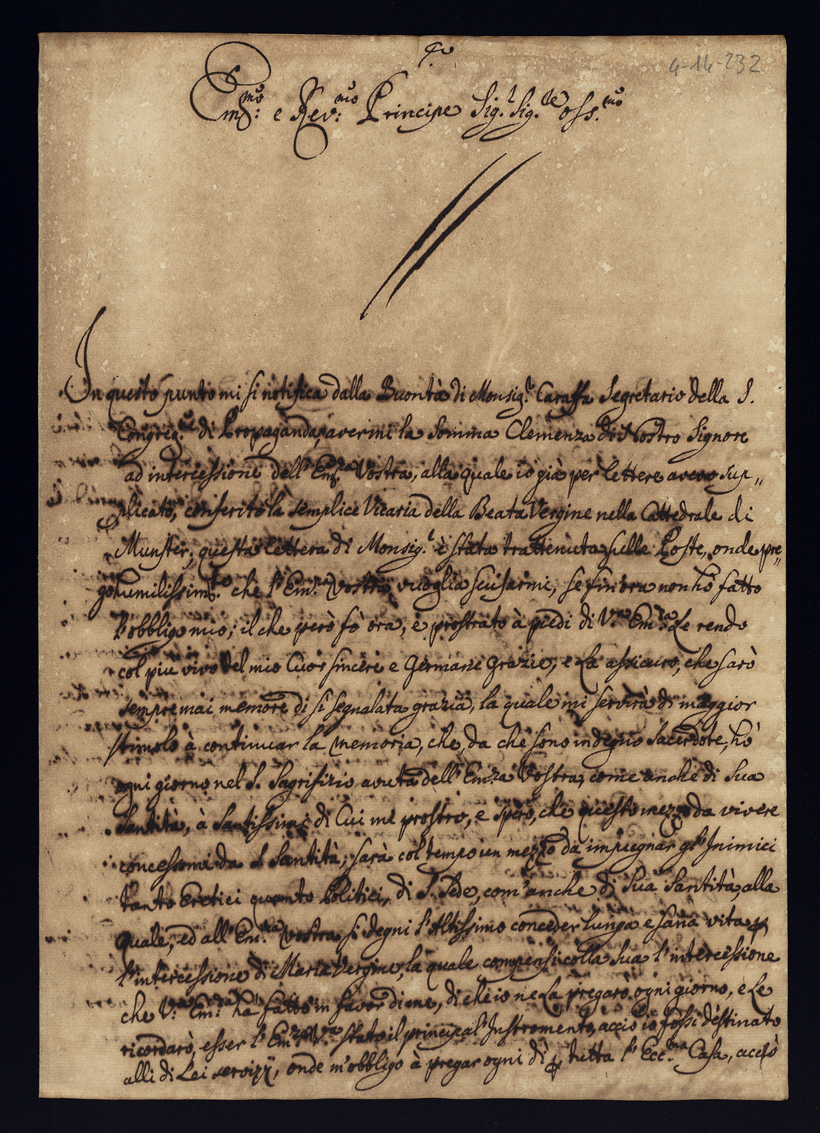 4-14-232
Em.mo e Rev.mo Principe Sig.r Sig.re oss.mo
In questo punto mi si notifica dalla Buontà di Monsig.r Caraffa Segretario della S.
Congreg.ne di Propaganda, avermi la somma Clemenza di Nostro Signore
ad intercessione dell'Em.za Vostra, alla quale io già per lettere avevo sup„
plicato, conferito la semplice Vicaria della Beata Vergine nella Cattedrale di
Munster; questa lettera di Monsig.r è stata trattenuta sulle Poste, onde pre„
go humilissim.te che l'Em.za Vostra voglia scusarmi, se fin'ora non hò fatto
l'obbligo mio; il che però fò ora, e prostrato à piedi di V.ra Em.za Le rendo
col più vivo del mio Cuor sincere e Germane grazie, e La assicuro, che sarò
sempre mai memore di sì segnalata grazia, la quale mi servirà di maggior
stimolo à continuar la memoria, che, da che sono indegno Sacerdote, hò
ogni giorno nel S. Sagrifizio avuta dell'Emza Vostra, come anche di Sua
Santità, à Santissimi di Cui mi prostro, e spero, che questo mezzo da vivere
concessomi da S. Santità, sarà col tempo un mezzo da impugnar gl'Inimici
tanto Eretici quanto Politici, di S. Sede, com'anche di Sua Santità, alla
quale, ed all'Em.za Vostra si degni l'Altissimo conceder lunga e sana vita p
l'intercessione di Maria Vergine, la quale compensi colla sua l'intercessione
che V.ra Em.za ha fatto in favor di me, di che io ne La pregarò ogni giorno, e Le
ricordarò, esser l'Em.za V.ra stata il principal'Instromento, acciò io fossi destinato
alli di Lei servizij, onde m'obbligo à pregar ogni dì p tutta l'Ecc.ma Casa, acciò